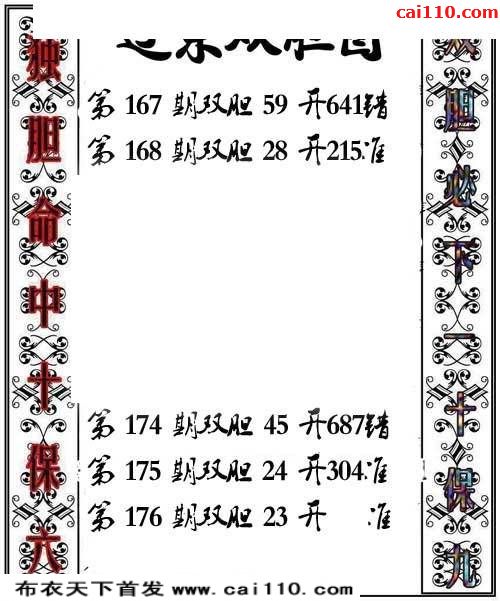 cai110.com
独胆命中十保六
第 167 期双胆 59 开641错
第 168 期双胆 28 开215.准
第 174 期双胆 45 开687错
第 175 期双胆 24 开304.准
第 176 期双胆 23 开 准
双胆必下一十保九
布衣天下首发 www.cai110.com